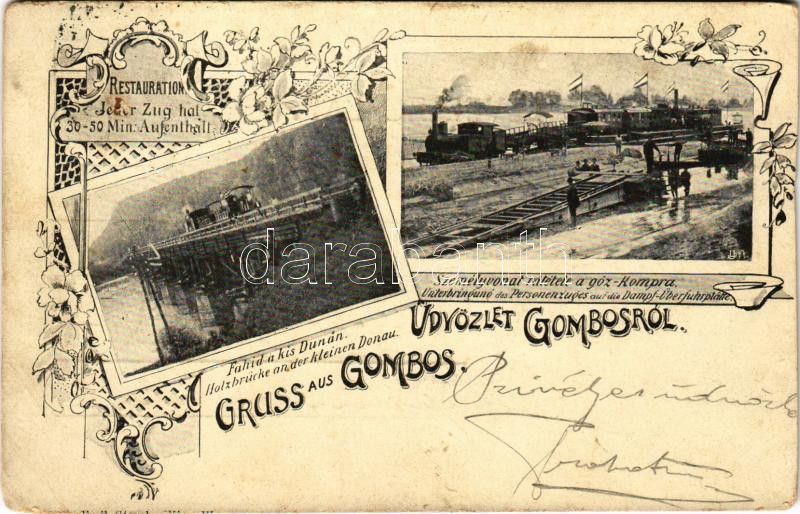 RESTAURATION.
Jeder Zug hat
30-50 Min: Aufenthalt.
Személyvonat tétele a gőz-Kompra.
Unterbringung des Personenzuges auf die Dampf-Überfuhrplätte.
Fahid a kis Dunán.
Holzbrücke an der kleinen Donau.
ÜDVÖZLET GOMBOSRÓL.
GRUSS AUS GOMBOS.
Szivélyes üdvözlet
darabanth.com